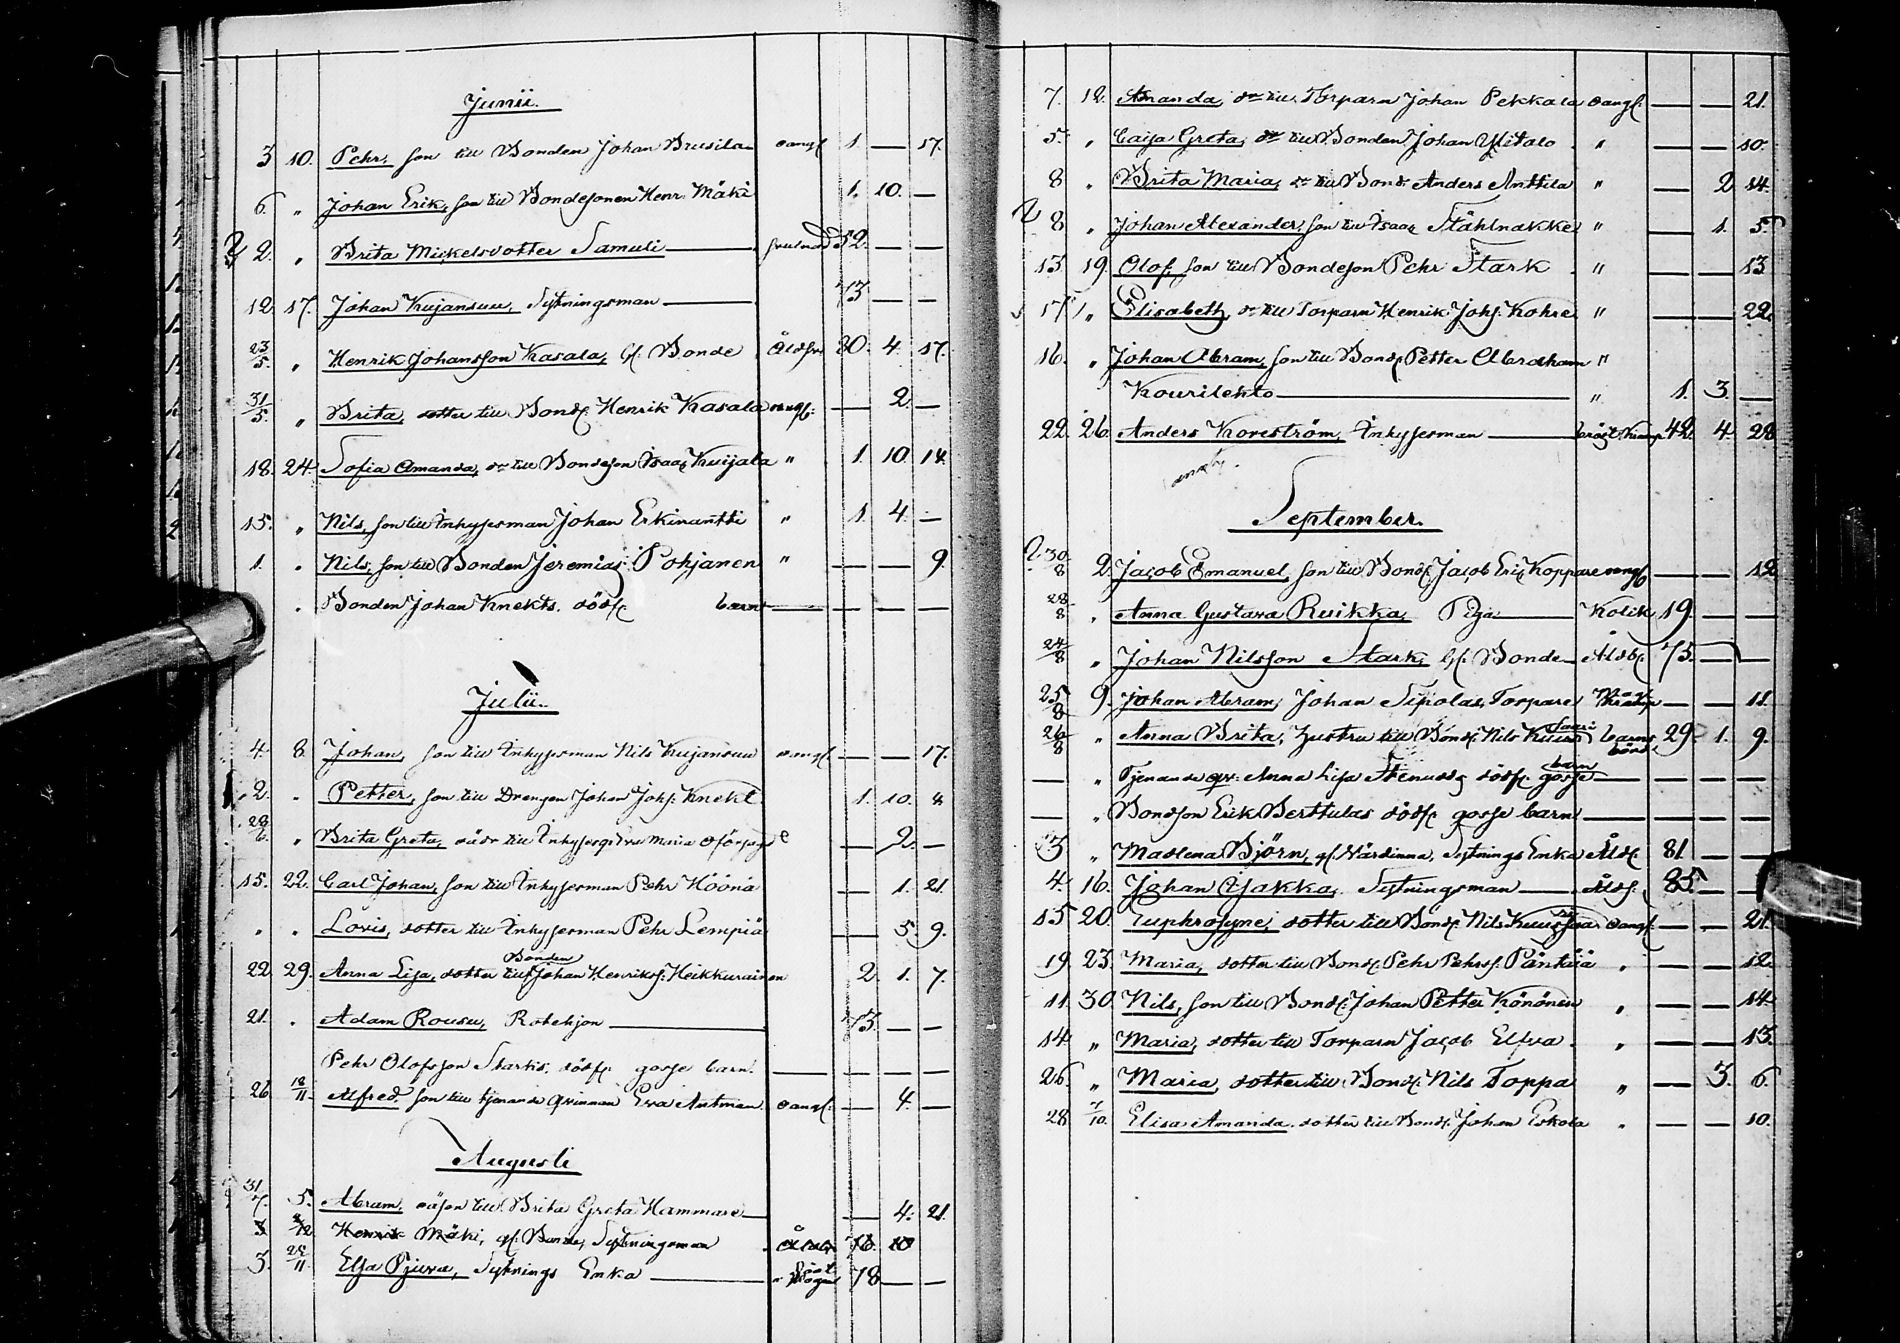 Junii.
3 10. Pehr, son till Bonden Johan Brusila oangf 1. — 17.
6. " Johan Erik, son till Bondesonen Henr. Mäki 1. 10. —
2. " Brita Mickelsdotter Samuli — 52. — —
12 17. Johan Kujansuu, Sytningsman — 73 — —
23/5. " Henrik Johansson Kasala, gf. Bonde Åldfr 80. 4. 17.
31/5. " Brita, dotter till Bond. Henrik Kasala oangf. — 2. —
18. 24. Sofia Amanda, dr till Bondeson Isaac Kuijala " 1. 10. 14.
15. " Nils, son till Inhyserman Johan Erkinantti " 1. 4. —
1. . Nils, son till Bonden Jeremias Pohjanen " — — 9.
. Bonden Johan Knekts. dödf. barn — — — —
Julii.
4. 8. Johan, son till Inhyserman Nils Kujansuu oangf. — — 17.
2. . Petter, son till Drengen Johan Johs. Knekt 1. 10. 8
28/6. " Brita Greta, oädr till Inhysesqv Maria — 2. —
15. 22. Carl Johan, son till Inhyserman Pehr Höönä — 1. 21.
. . Lovis, dotter till Inhyserman Pehr Lempiä — 5. 9.
22. 29. Anna Lisa, dotter till Bonden Johan Henriks. Heikkurainen 2. 1. 7.
21. . Adam Rousu, Rotehjon — 73. — —
Pehr Olofsson Starks, dödf. gosse barn. — — —
26. 18/11. Alfred, son till tjenande qvinnan Eva Antman oangf. — 4. —
Augusti
31/7. 5. Abram, oäson till Brita Greta Hammare — — 4. 21.
3 2/12 Henrik Mäki, gf. Bonde, Sytningsman 76 10
3. 28/11. Elsa Pjuva, Sytnings Enka — 78 — —
7. 12. Amanda, dr till Torparn Johan Pekkala oangf. — — 21.
5. " Caisa Greta, dr till Bonden Johan Ylitalo " — — 10.
8 " Brita Maria, dr till Bond. Anders Anttila " — 2 14.
8 " Johan Alexander, son till Isaac Ståhlnakke " — 1. 5.
13. 19. Olof, son till Bondeson Pehr Stark " — — 13
17 " Elisabeth, dr till Torparn Henrik Johs. Kohre " — — 22.
16. " Johan Abram, son till Bond. Petter Abraham "
Kourilehto — " 1. 3. —
22. 26. Anders Korström, Inhyserman — 42. 4. 28
September.
30/8 2. Jacob Emanuel, son till Bond. Jacob Eric Koppare oangf — — 12
28/8 " Anna Gustava Ruikka, Piga — Kolik 19. — —
24/8 " Johan Nilsson Stark, gf. Bonde — Åldf. 75. — —
25/8 9. Johan Abram, Johan Sipolas, Torpare — — 11.
26/8 " Anna Brita, hustru till Bond. Nils Kuusi barns börd 29 1. 9.
— " Tjenande qv. Anna Lisa dödf. gosse barn — — — —
— " Bondson Erik Berttulas dödf. gosse barn — — — —
3 " Madlena Björn, gf. Värdinna, Sytnings Enka Åldf. 81 — —
4. 16. Johan Jakko, Sytningsman — Åldf. 85. — —
15 20. Euphrosyne, dotter till Bond. Nils Kuusivaar oangf. — — 21.
19. 23. Maria, dotter till Bond. Pehr Pehrs. Päntiiä " — — 12.
11. 30. Nils, son till Bond. Johan Petter Könönen " — — 14.
14. " Maria, dotter till Torparn Jacob Elfva " — — 13.
26. " Maria, dotter till Bond. Nils Toppa " — 3. 6.
28 7/10. Elisa Amanda, dotter till Bond. Johan Eskola " — — 10.